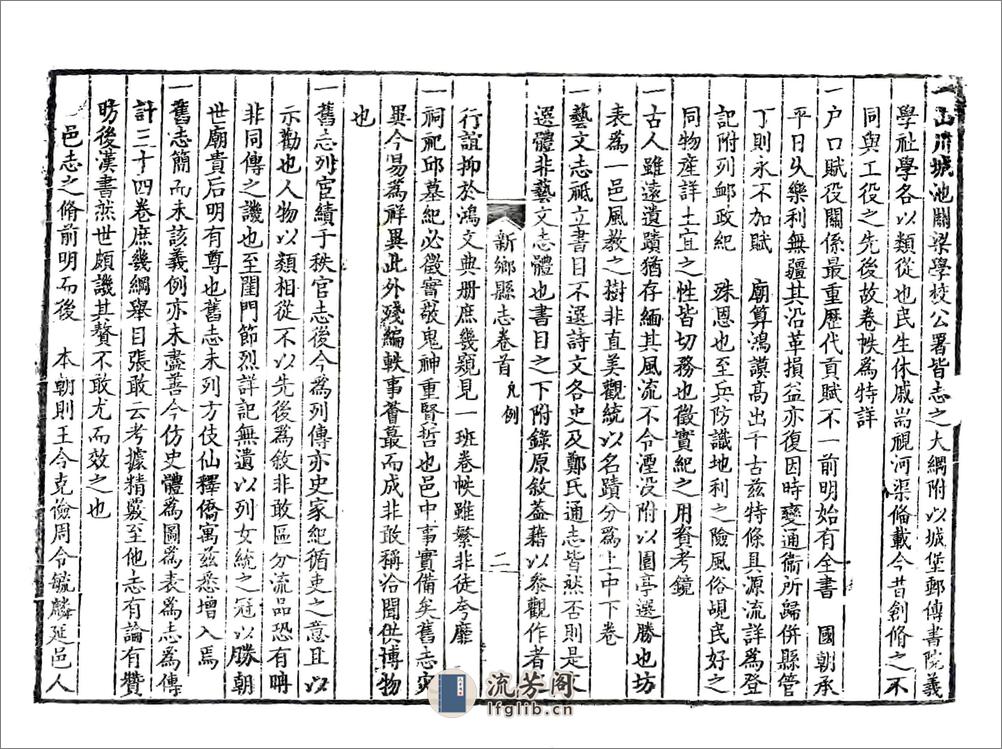 一山川城池關梁學校公署皆志之大綱附以城堡郵傳書院義
學社學各以類從也民生休戚耑視河渠俻載今昔創脩之不
同與工役之先後故卷帙爲特詳
一户口賦役關係最重歷代貢賦不一前明始有全書　國朝承
平日乆樂利無疆其沿革損益亦復因時變通衞所歸併縣管
丁則永不加賦　廟算鴻謨高出千古兹特條具源流詳爲登
記附列䘏政紀　殊恩也至兵防識地利之險風俗覘民好之
同物産詳土宜之性皆切務也徵實紀之用脊考鏡
一古人雖遠遺蹟猶存緬其風流不令湮没附以園亭選勝也坊
表爲一邑風教之樹非直美觀統以名蹟分爲上中下卷
一藝文志祗立書目不選詩文各史及鄭氏通志皆然否則是文
選體非藝文志體也書目之下附錄原敘葢藉以叅觀作者之
新鄉縣志卷首　凡例　二
行誼抑於鴻文典册庶幾窺見一班卷帙雖繁非徒夸靡
一祠祀邱墓紀必徵實敬鬼神重賢哲也邑中事實備矣舊志灾
異今易爲祥異此外殘編軼事薈蕞而成非敢稱洽聞供博物
也
一舊志列宦績于秩官志後今爲列傳亦史家紀循吏之意且以
示勸也人物以類相從不以先後爲敘非敢區分流品恐有聃
非同傳之譏也至閨門節烈詳記無遺以列女統之冠以勝朝
世廟貴后明有尊也舊志未列方伎仙釋僑寓兹悉增入焉
一舊志簡而未該義例亦未盡善今仿史體爲圖爲表爲志爲傳
計三十四卷庶幾綱舉目張敢云考據精覈至他志有論有贊
昉後漢書然世頗譏其贅不敢尤而效之也
一邑志之脩前明而後　本朝則王令克儉周令毓麟延邑人
流芳阁
lfglib.cn